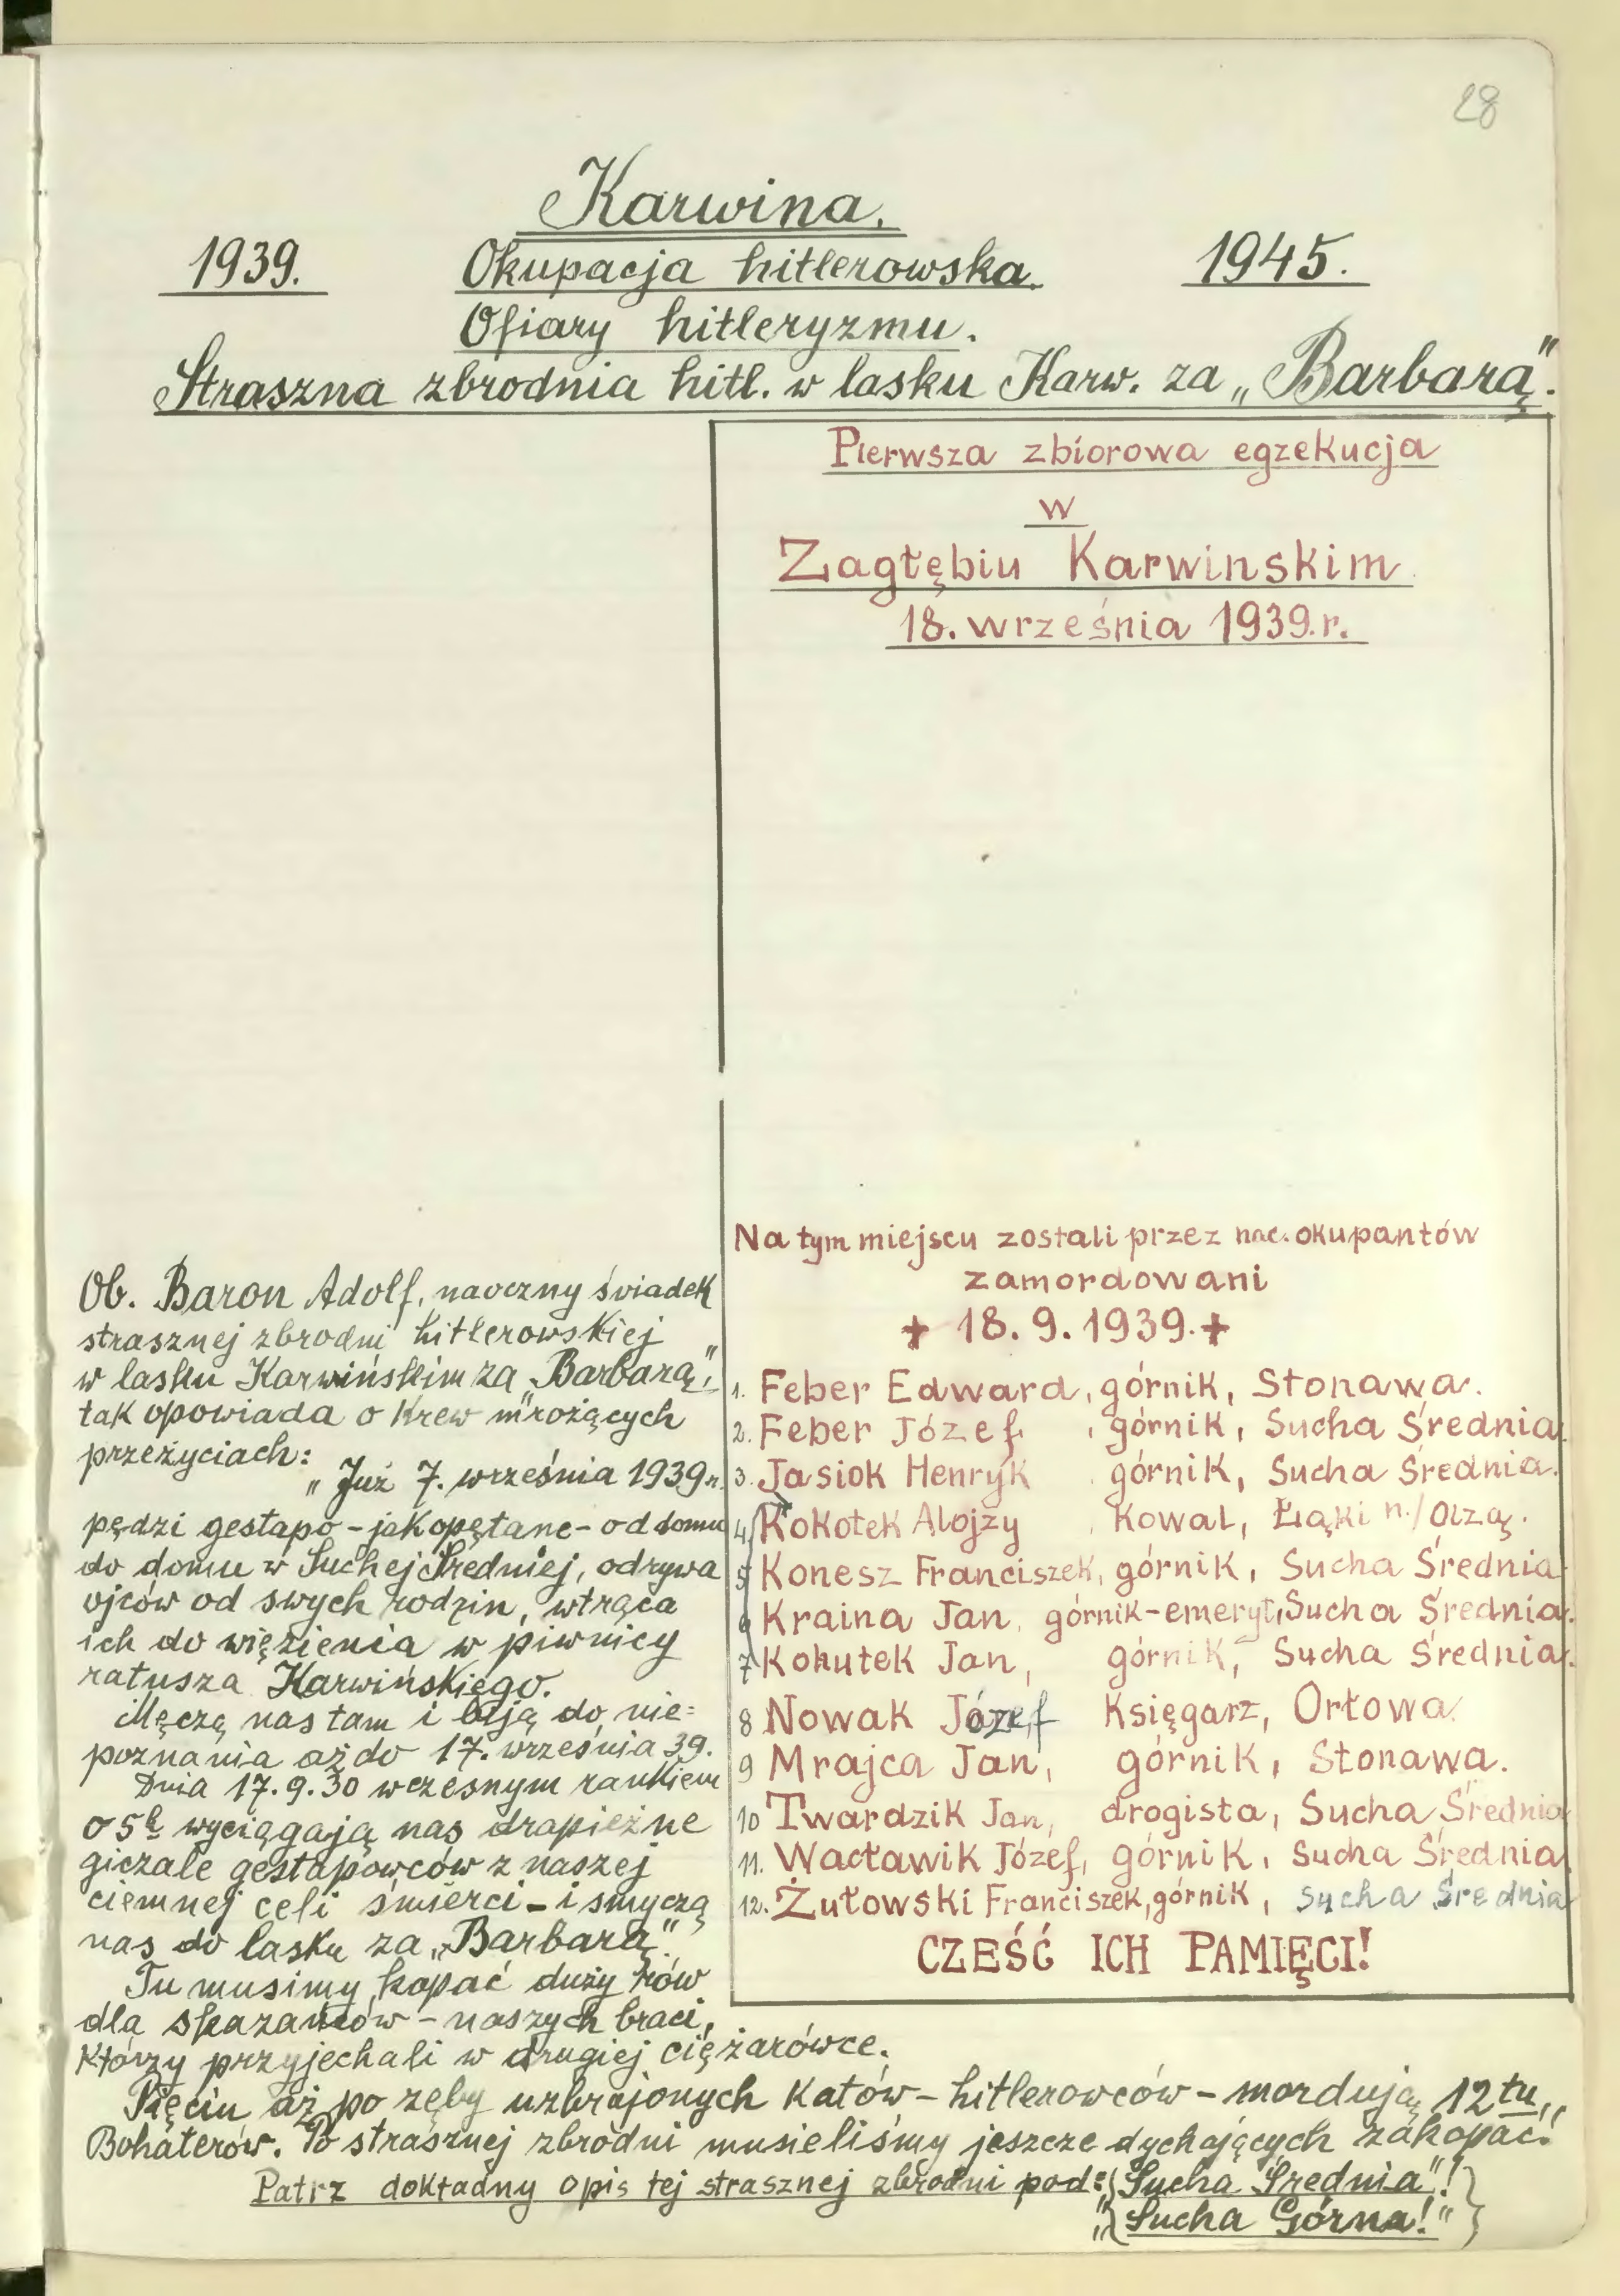 28
Karwina.
1939. Okupacja hitlerowska. 1945.
Ofiary hitleryzmu.
Straszna zbrodnia hitl. w lasku Karw. za „Barbarą".
Pierwsza zbiorowa egzekucja
w
Zagłębiu Karwinskim
18. września 1939.r.
Na tym miejscu zostali przez nac. okupantów
zamordowani
+ 18. 9. 1939. +
1. Feber Edward, górnik, Stonawa.
2. Feber Józef, górnik, Sucha Średnia.
3. Jasiok Henryk, górnik, Sucha Średnia.
4 Kokotek Alojzy, Kowal, Łąki n./Olzą.
5 Konesz Franciszek, górnik, Sucha Średnia
6 Kraina Jan, górnik-emeryt, Sucha Średnia.
7 Kohutek Jan, górnik, Sucha Średnia.
8 Nowak Józef Księgarz, Orłowa.
9 Mrajca Jan, górnik, Stonawa.
10 Twardzik Jan, drogista, Sucha Średnia
11. Wacławik Józef, górnik, Sucha Średnia
12. Żutowski Franciszek, górnik, Sucha Średnia
CZEŚĆ ICH PAMIĘCI!
Ob. Baron Adolf, naoczny świadek
strasznej zbrodni hitlerowskiej
w lasku Karwińskim za „Barbarą",
tak opowiada o krew mrożących
przeżyciach:
„Już 7. września 1939 r.
pędzi gestapo – jak opętane – od domu
do domu w Suchej Średniej, odrywa
ojców od swych rodzin, wtrąca
ich do więzienia w piwnicy
ratusza Karwińskiego.
Męczą nas tam i biją do nie=
poznania aż do 17. września 39.
Dnia 17. 9. 30 wczesnym rankiem
o 5h wyciągają nas drapieżne
giczale gestapowców z naszej
ciemnej celi śmierci – i smyczą
nas do lasku za „Barbarą".
Tu musimy kopać duży rów
dla skazańców – naszych braci,
którzy przyjechali w drugiej ciężarówce.
Pięciu aż po zęby uzbrajonych katów – hitlerowców – mordują 12tu
Bohaterów. Po strasznej zbrodni musieliśmy jeszcze dychających zakopać!"
Patrz dokładny opis tej strasznej zbrodni pod: „Sucha Średnia"!
„Sucha Górna!"